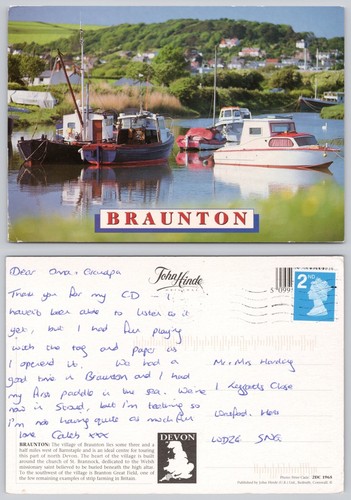 BRAUNTON
Dear Oma + Grandpa
John Hinde
Thank you for my CD – I
haven't been able to listen to it
yet, but I had fun playing
with the tag and paper as
I opened it. We had a
good time in Braunton and I had
my first paddle in the sea. We're
now in Stroud, but I'm teething so
I'm not having quite as much fun
love Caleb xxx
2ND
5 099
Mr + Mrs Harding
1 Close
Watford, Herts
WD26
BRAUNTON: The village of Braunton lies some three and a
half miles west of Barnstaple and is an ideal centre for touring
this part of north Devon. The heart of the village is built
around the church of St. Brannock, dedicated to the Welsh
missionary saint believed to be buried beneath the high altar.
To the southwest of the village is Braunton Great Field, one of
the few remaining examples of strip farming in Britain.
DEVON
2DC 1964